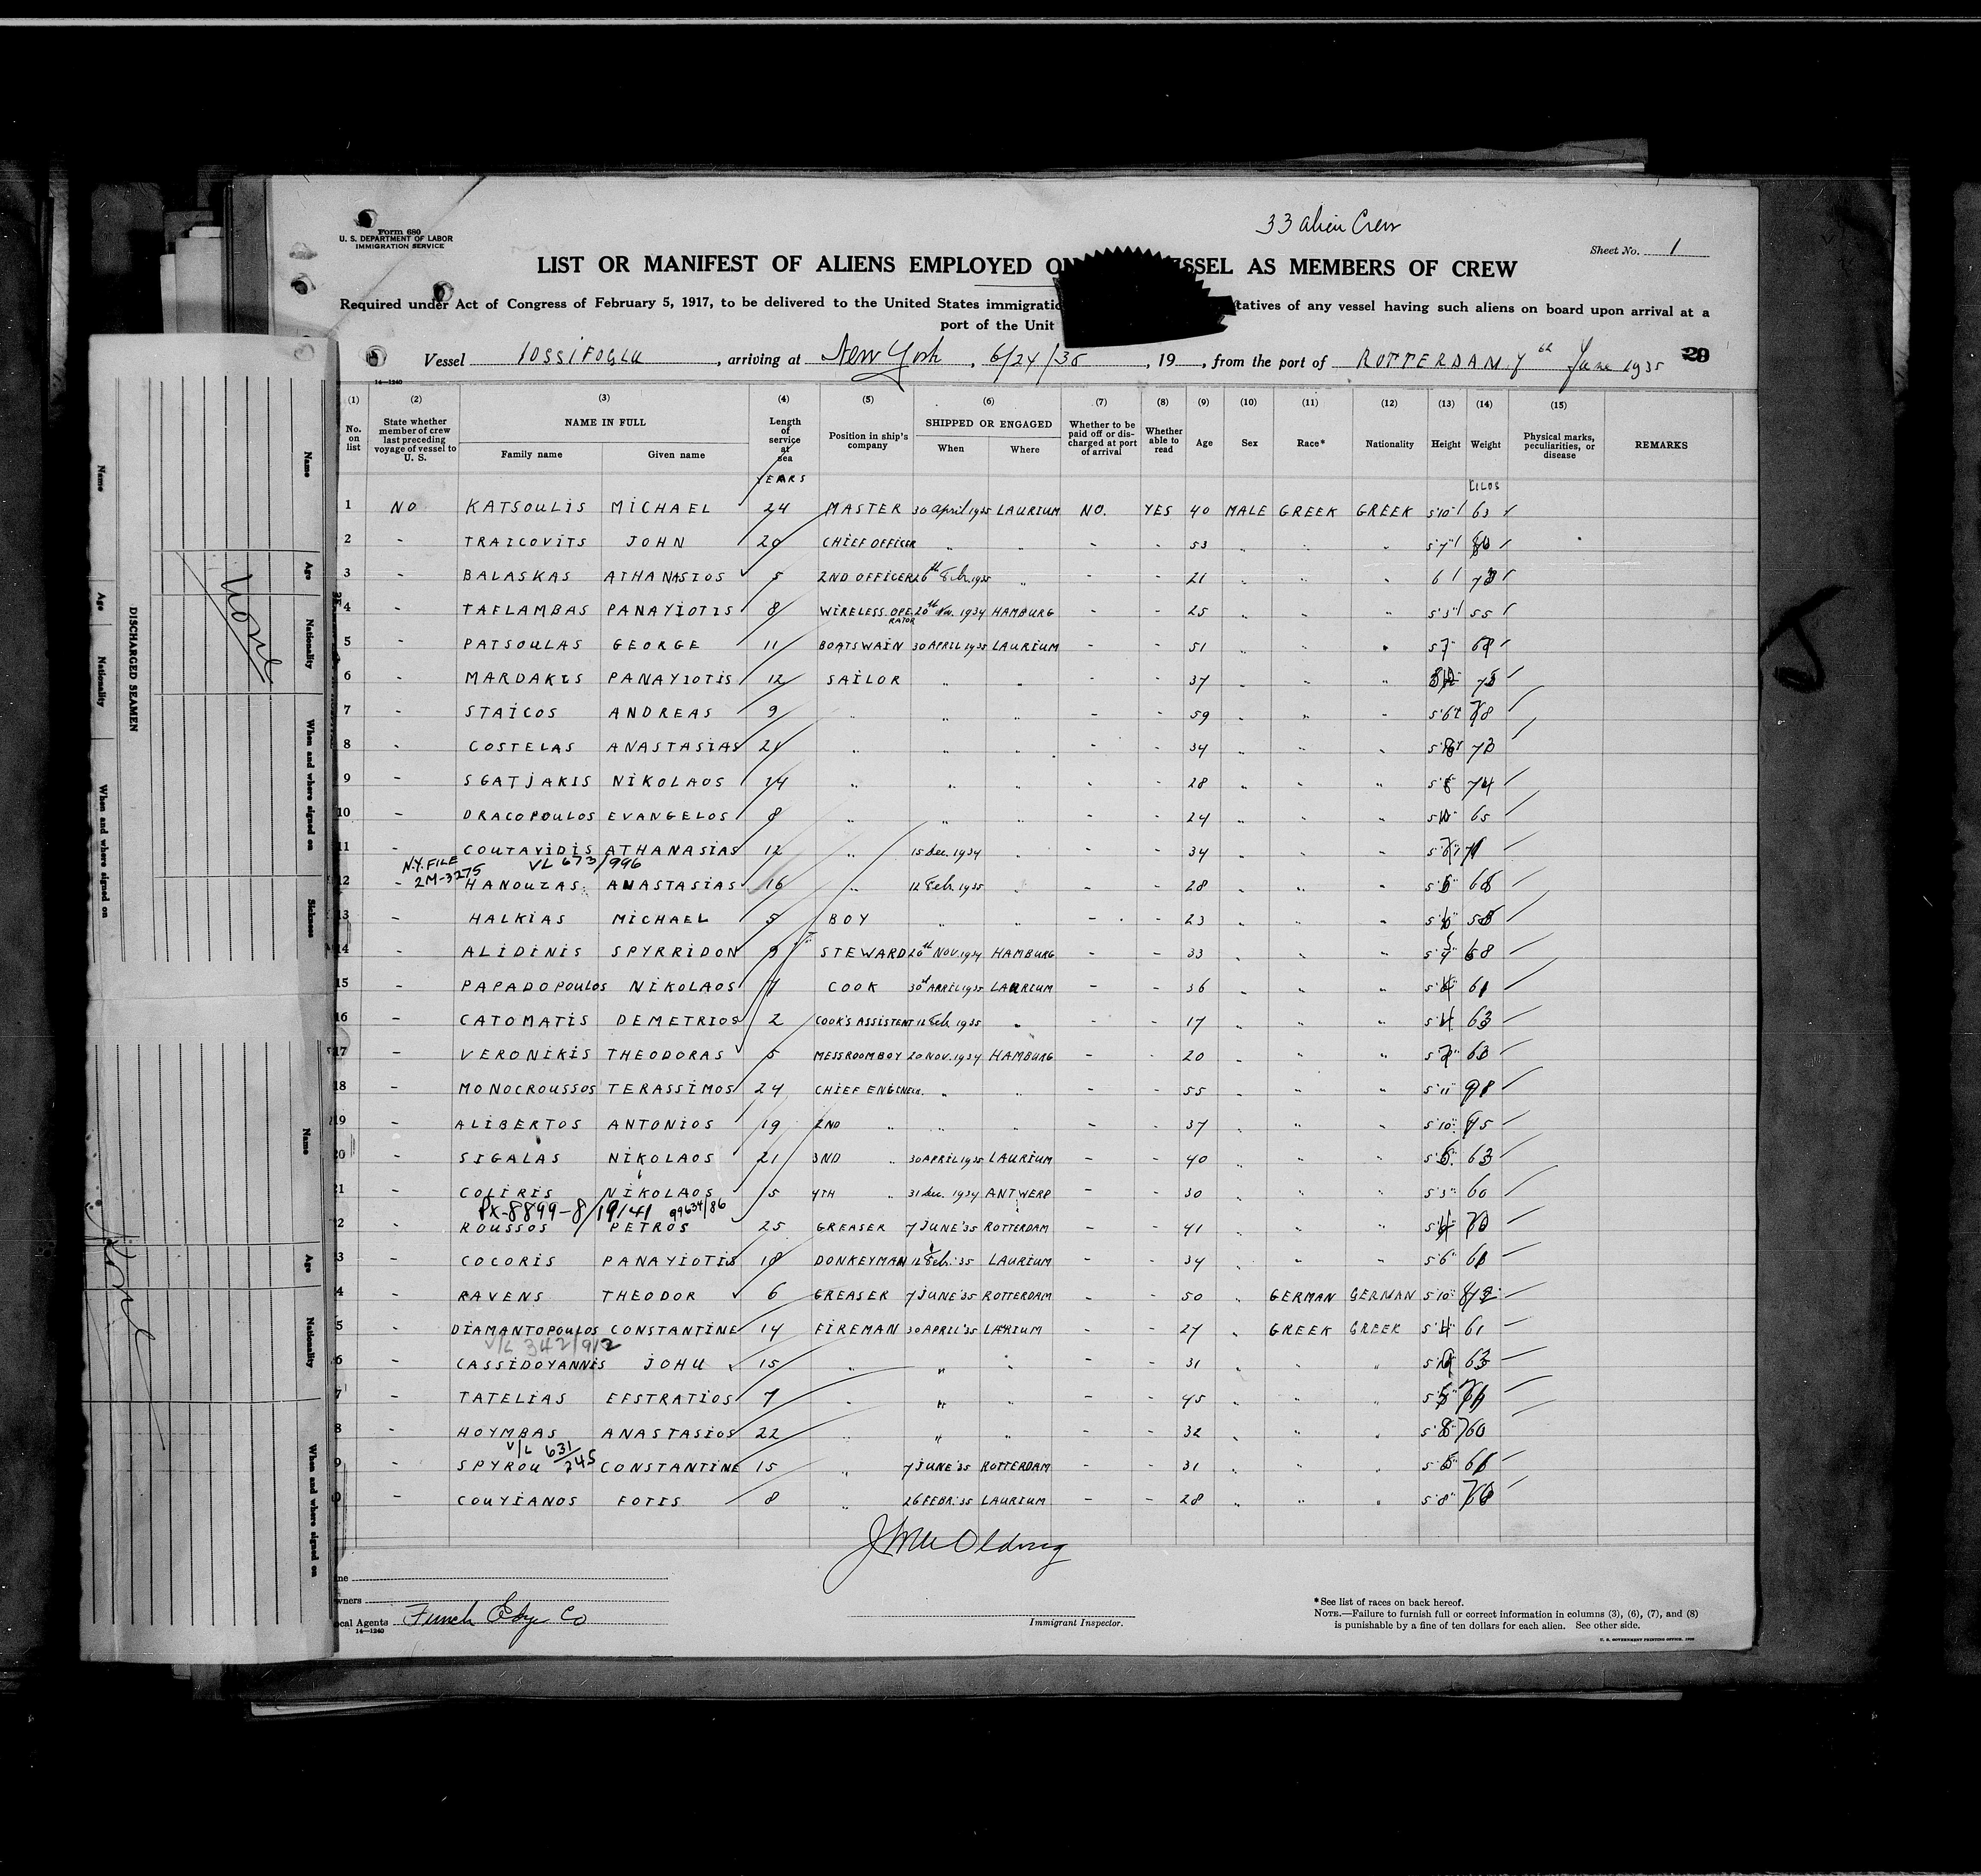 33 alien Crew
Form 680
U. S. DEPARTMENT OF LABOR
IMMIGRATION SERVICE
Sheet No. 1
LIST OR MANIFEST OF ALIENS EMPLOYED ON SSEL AS MEMBERS OF CREW
Required under Act of Congress of February 5, 1917, to be delivered to the United States immigratio tatives of any vessel having such aliens on board upon arrival at a
port of the Unit
Vessel IOSSIFOGLU, arriving at New York, 6/24/35, 19, from the port of ROTTERDAM. 7th June 1935 29
14—1240
(1) (2) (3) (4) (5) (6) (7) (8) (9) (10) (11) (12) (13) (14) (15)
No. on list State whether member of crew last preceding voyage of vessel to U. S. NAME IN FULL Family name Given name Length of service at sea Position in ship's company SHIPPED OR ENGAGED When Where Whether to be paid off or discharged at port of arrival Whether able to read Age Sex Race* Nationality Height Weight Physical marks, peculiarities, or disease REMARKS
YEARS KILOS
1 NO KATSOULIS MICHAEL 24 MASTER 30 April 1935 LAURIUM NO. YES 40 MALE GREEK GREEK 5'10" 63
2 - TRAICOVITS JOHN 20 CHIEF OFFICER " " - - 53 " " " 5'7"
3 - BALASKAS ATHANASIOS 5 2ND OFFICER 26th Feb. 1935 " - - 21 " " " 6
4 - TAFLAMBAS PANAYIOTIS 8 WIRELESS OPERATOR 20th Nov. 1934 HAMBURG - - 25 " " " 5'3" 55
5 - PATSOULAS GEORGE 11 BOATSWAIN 30 APRIL 1935 LAURIUM - - 51 " " " 5'7"
6 - MARDAKIS PANAYIOTIS 12 SAILOR " " - - 37 " " "
7 - STAICOS ANDREAS 9 " " " - - 59 " " " 5'6"
8 - COSTELAS ANASTASIAS 21 " " " - - 34 " " "
9 - SGATJAKIS NIKOLAOS 14 " " " - - 28 " " " 74
10 - DRACOPOULOS EVANGELOS 8 " " " - - 24 " " " 65
11 - COUTAVIDIS ATHANASIAS 12 " 15 Dec. 1934 " - - 34 " " "
N.Y. FILE 2M-3275 VL 673/996
12 - HANOUZAS ANASTASIAS 16 " 12 Feb. 1935 " - - 28 " " "
13 - HALKIAS MICHAEL 5 BOY " " - - 23 " " "
14 - ALIDINIS SPYRRIDON 9 STEWARD 20th NOV. 1934 HAMBURG - - 33 " " "
15 - PAPADOPOULOS NIKOLAOS 7 COOK 30st APRIL 1935 LAURIUM - - 36 " " " 61
16 - CATOMATIS DEMETRIOS 2 COOK'S ASSISTENT 12 Feb. 1935 " - - 17 " " " 63
17 - VERONIKIS THEODORAS 5 MESSROOMBOY 20 NOV. 1934 HAMBURG - - 20 " " "
18 - MONOCROUSSOS TERASSIMOS 24 CHIEF ENGINEER. " " - - 55 " " " 5'11"
19 - ALIBERTOS ANTONIOS 19 2ND " " " - - 37 " " " 5'10"
20 - SIGALAS NIKOLAOS 21 3ND " 30 APRIL 1935 LAURIUM - - 40 " " " 63
21 - COLIRIS NIKOLAOS 5 4TH " 31 Dec. 1934 ANTWERP - - 30 " " " 5'3" 60
PX-8899-8/19/41 99634/86
2 - ROUSSOS PETROS 25 GREASER 7 JUNE '35 ROTTERDAM - - 41 " " "
3 - COCORIS PANAYIOTIS 18 DONKEYMAN 12 Feb. '35 LAURIUM - - 34 " " " 5'6"
4 - RAVENS THEODOR 6 GREASER 7 JUNE '35 ROTTERDAM - - 50 " GERMAN GERMAN 5'10"
5 - DIAMANTOPOULOS CONSTANTINE 14 FIREMAN 30 APRIL '35 LARIUM - - 27 " GREEK GREEK 61
V/L 342/912
6 - CASSIDOYANNIS JOHU 15 " " " - - 31 " " " 63
7 - TATELIAS EFSTRATIOS 7 " " " - - 45 " " "
8 - HOYMBAS ANASTASIOS 22 " " " - - 32 " " "
V/L 631/245
9 - SPYROU CONSTANTINE 15 " 7 JUNE '35 ROTTERDAM - - 31 " " "
0 - COUYIANOS FOTIS 8 " 26 FEBR. 35 LAURIUM - - 28 " " " 5'8"
ne
wners
ocal Agents Funch Edye Co
14—1240
Immigrant Inspector.
*See list of races on back hereof.
NOTE.—Failure to furnish full or correct information in columns (3), (6), (7), and (8)
is punishable by a fine of ten dollars for each alien. See other side.
U. S. GOVERNMENT PRINTING OFFICE
DISCHARGED SEAMEN
Name Age Nationality When and where signed on Sickness
None
Name Age Nationality When and where signed on
None
Name Age Nationality When and where signed on